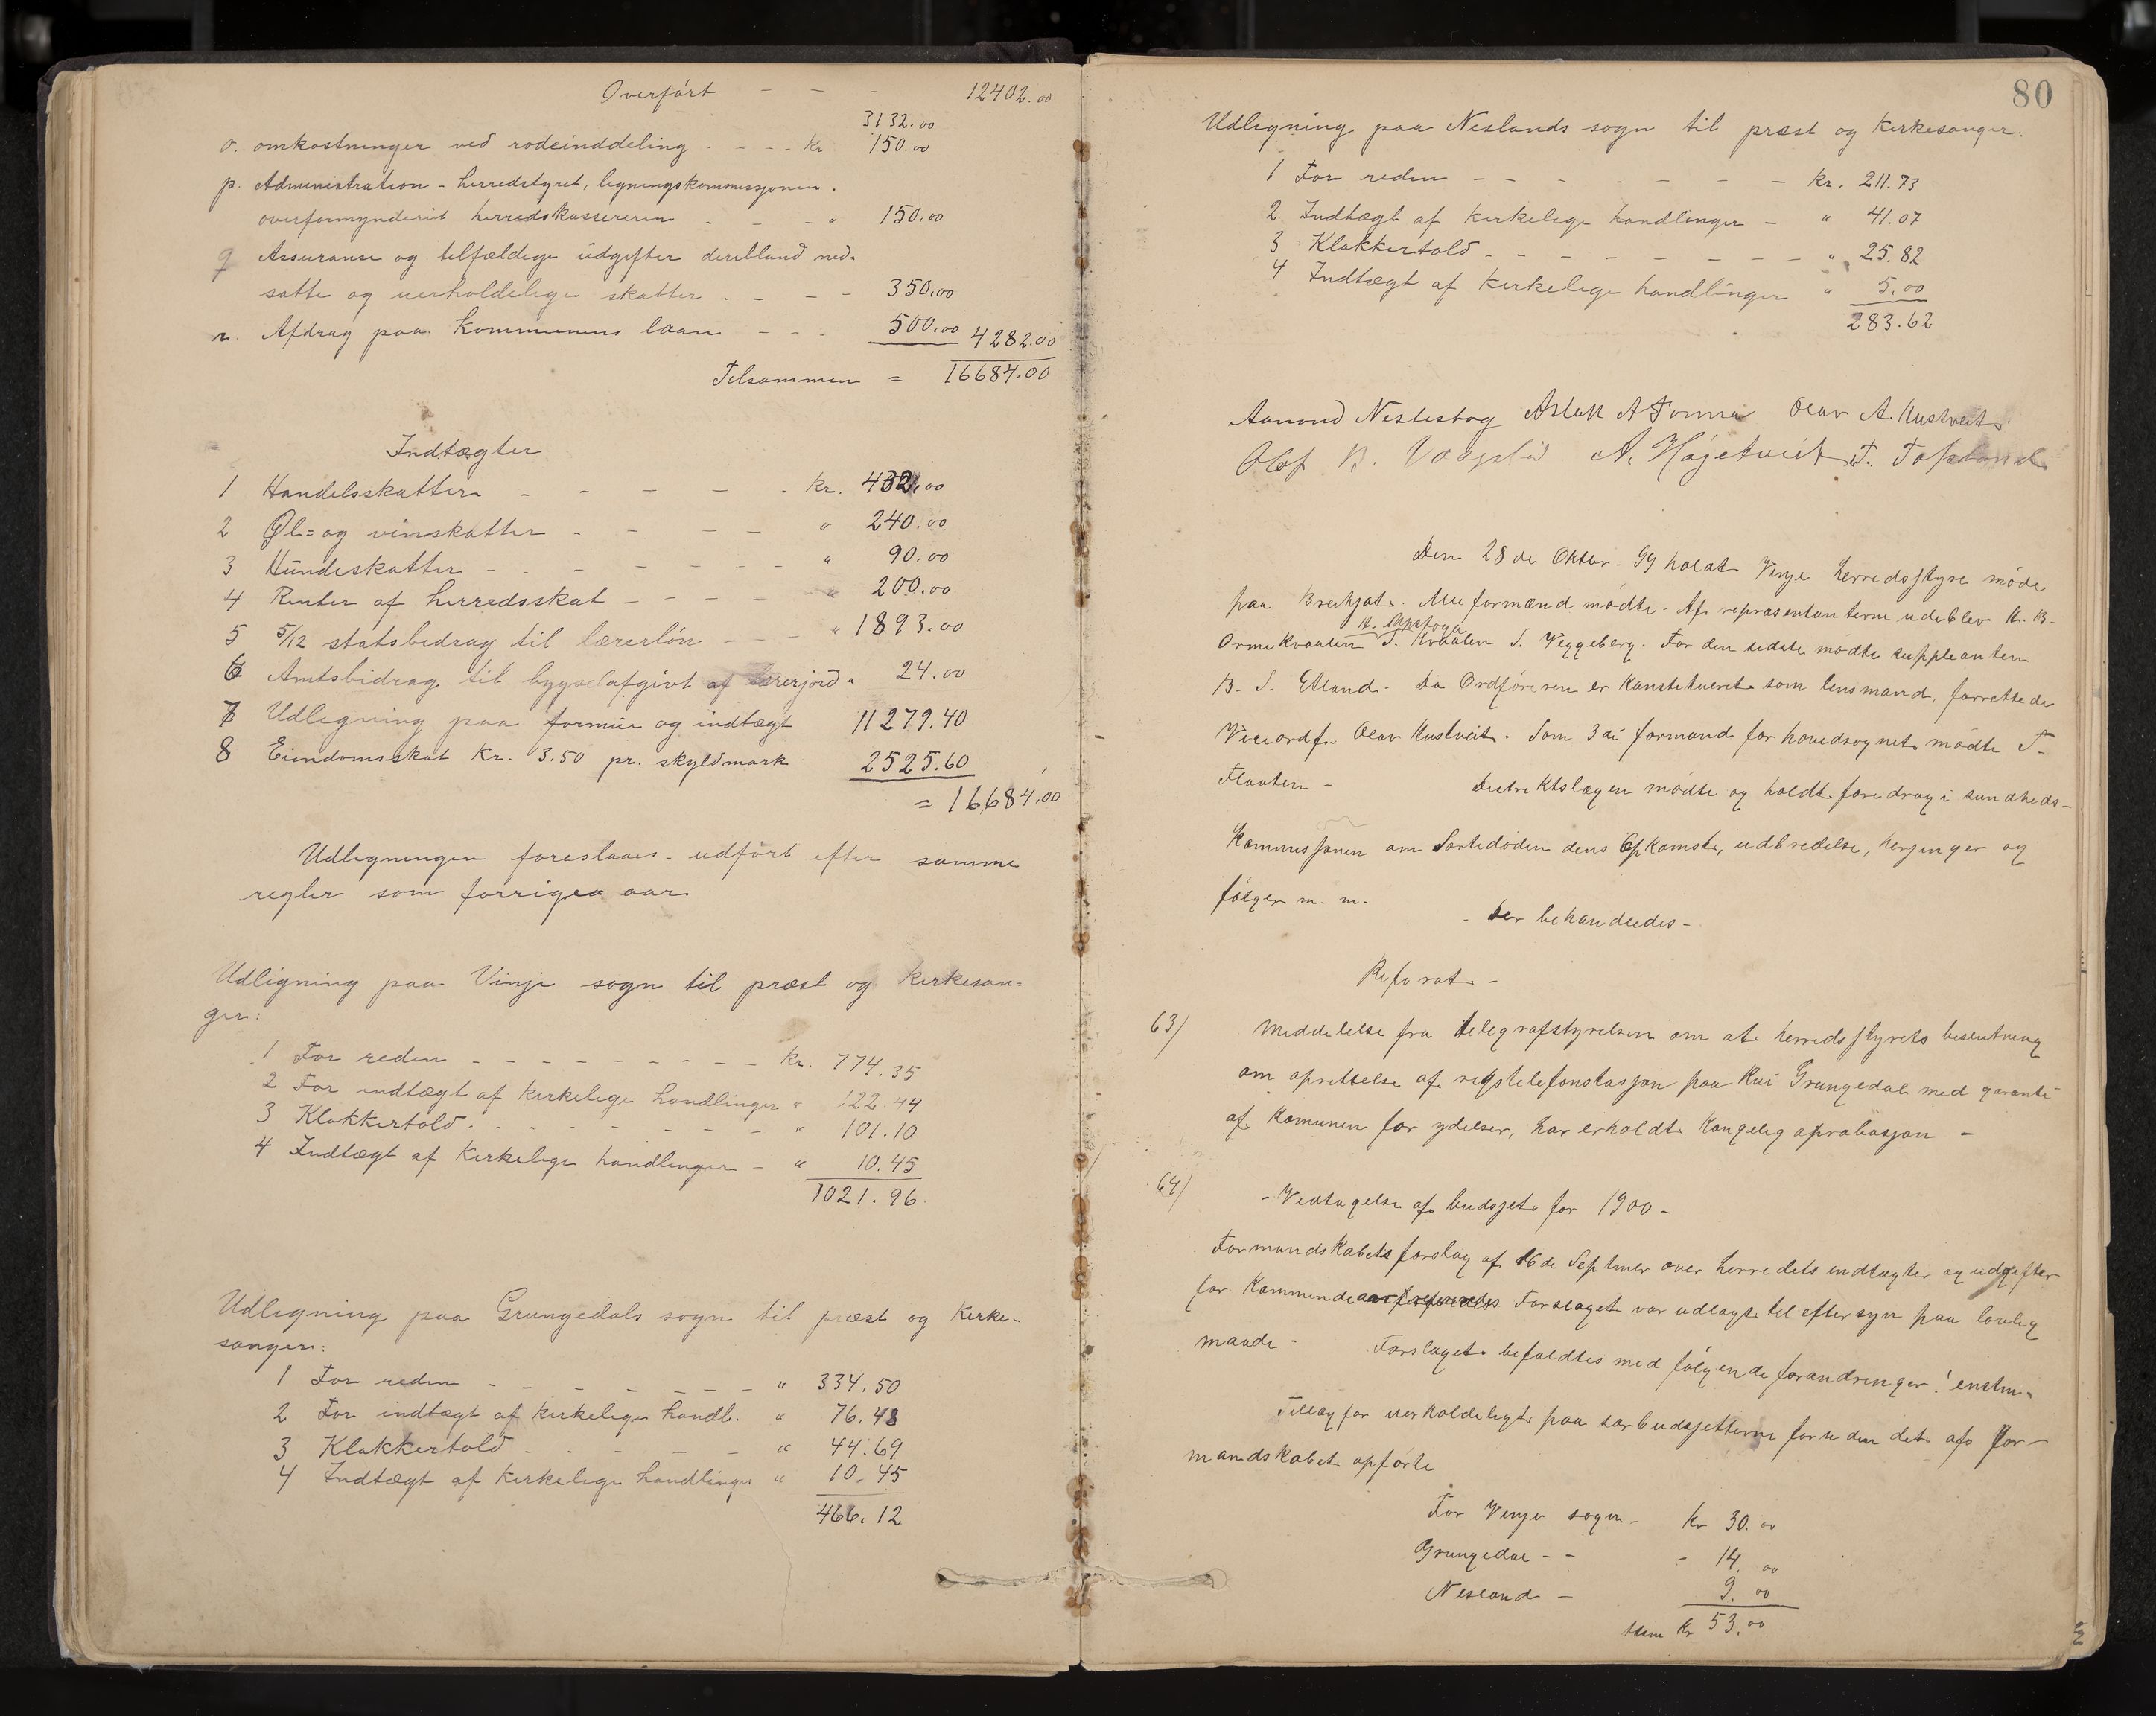 Overført - - - 12402.00
3132.00
o. omkostninger ved rodeinddeling - - - kr 150.00
p. Administration - herredstyret, ligningskommissjonen.
overformynderiet herredskassereren - - - " 150.00
q Assuranse og tilfældige udgifter deribland ned-
satte og uerholdelige skatter - - - 350.00
r. Afdrag paa kommunens laan - - - 500.00 4282.00
Tilsammen = 16684.00
Indtægter
1 Handelsskatten - - - - - kr. 432.00
2 Øl= og vinskatten - - - - " 240.00
3 Hundeskatten - - - - - - " 90.00
4 Renter af herredsskat - - - - - " 200.00
5 5/12 statsbedrag til lærerløn - - - " 1893.00
6 Amtsbidrag til bygselafgivt af lærerjord " 24.00
7 Udlegning paa formue og indtægt 11279.40
8 Eiendomsskat kr. 3.50 pr. skyldmark 2525.60
= 16684.00
Udlegningen foreslaaes udført efter samme
regler som forriges aar
Udligning paa Vinje sogn til præst og kirkesan-
ger:
1 For reden - - - - - - - - - kr. 774.35
2 For indtægt af kirkelige handlinger " 122.44
3 Klokkertold - - - - - - - - " 101.10
4 Indtægt af kirkelige handlinger - " 10.45
1021.96
Udlegning paa Grungedals sogn til præst og kirke-
sanger:
1 For reden - - - - - - - " 334.50
2 For indtægt af kirkelige handl. " 76.48
3 Klokkertold - - - - - " 44.69
4 Indtægt af kirkelige handlinger " 10.45
466.12
80
Udlegning paa Neslands sogn til præst og kirkesanger.
1 For reden - - - - - - - - kr. 211.73
2 Indtægt af kirkelige handlinger - " 41.07
3 Klokkertold - - - - - - - - " 25.82
4 Indtægt af kirkelige handlinger " 5.00
283.62
Aanond Nestestog Aslak A Tonna Olav A. Kustveit
Olaf B. Vaagslid A. Høgetveit T.
Den 28de Oktbr. 99 holdt Vinje herredsstyre møde
paa Alle formænd mødte. Af repræsentanterne udeblev K. B.
Ormekvaalen T. Kvaalen S. Veggeberg. For den sidste mødte suppleanten
B. S. Edland. Da Ordføreren er Konstitueret som lensmand, forrettede
Viceordf. Olav Kustveit. Som 3die formand for hovedsognet mødte T.
Flaaten - Destriktslægen mødte og holdt foredrag i sundheds-
Kommissjonen om Sortedøden dens Opkomst, udbredelse, herjinger og
følger m. m.
- Der behandledes -
Referat -
63) Meddelelse fra telegrafstyrelsen om at herredsstyrets beslutning
om oprettelse af rigstelefonstasjon paa Rui Grungedal med garanti
af Komunen for ydelser, har erholdt Kongelig aprobasjon -
64) - Vedtagelse af budsjet for 1900 -
Formandskabets forslag af 16de Septmer over herredets indtægter og udgifter
for Kommende aar Forslaget var udlagt til eftersyn paa lovlig
maade - Forslaget befaldtes med følgende forandringer! enstm.
Tillæg for uerholdeligt paa særbudsjetterne foruden det af for-
mandskabet opførte
For Vinje sogn - kr 30.00
Grungedal - - - 14.00
Nesland - 9.00
Sum kr 53.00